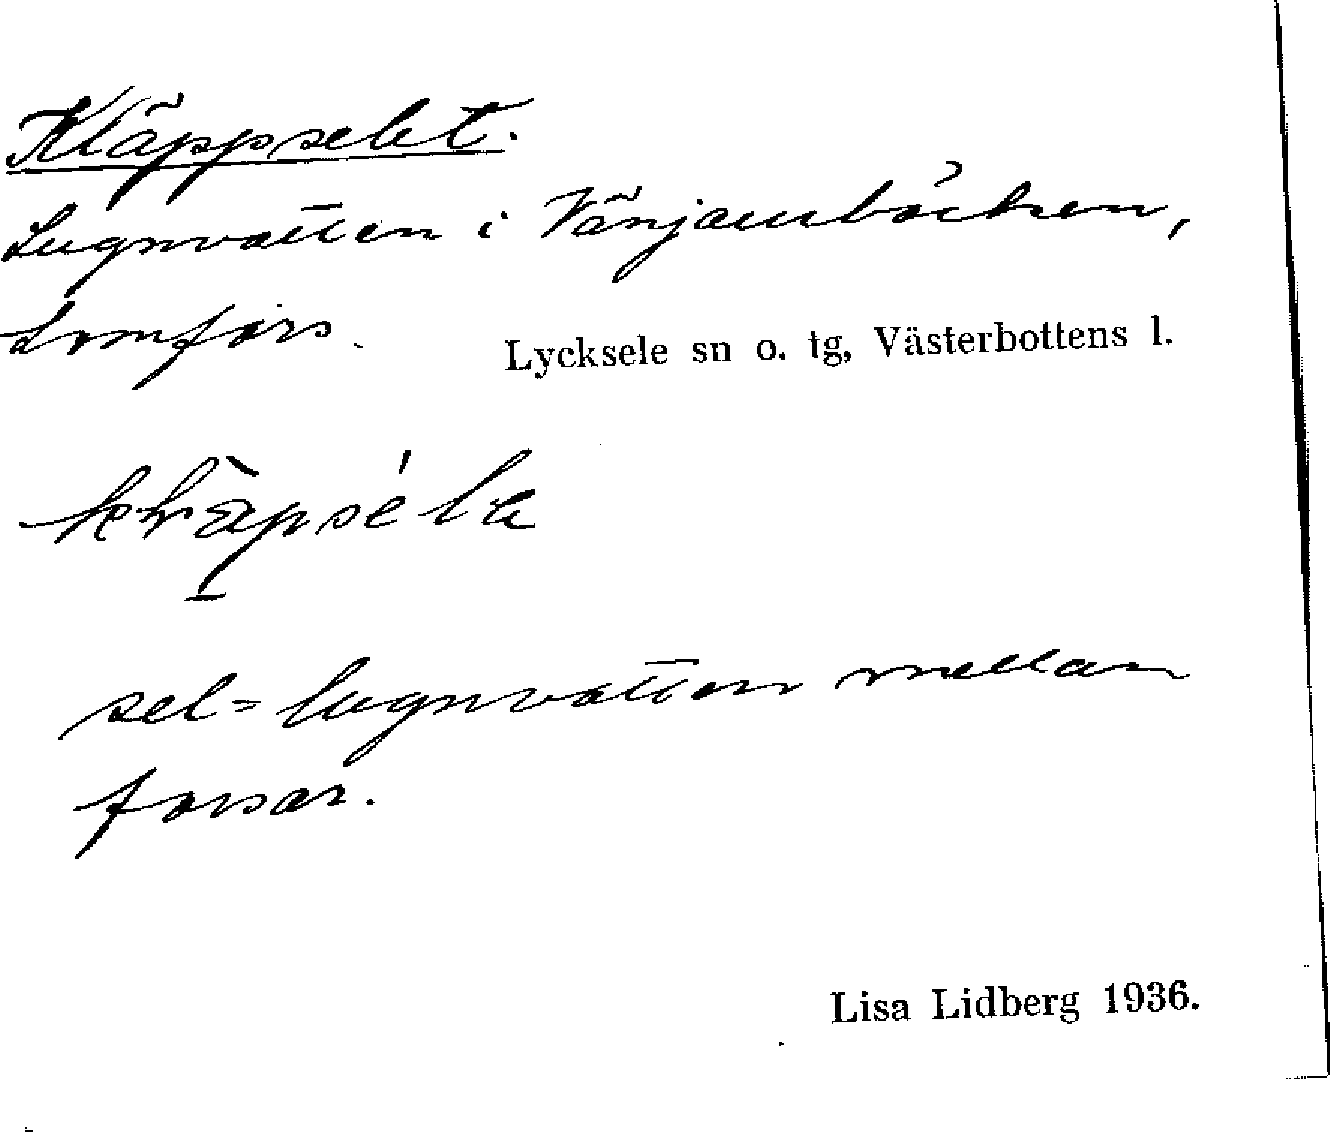 Kläppselet.
Lugnvatten i Vänjaurbäcken,
Lomfors.
Lycksele sn o. tg, Västerbottens l.
sel = lugnvatten mellan
forsar.
Lisa Lidberg 1936.